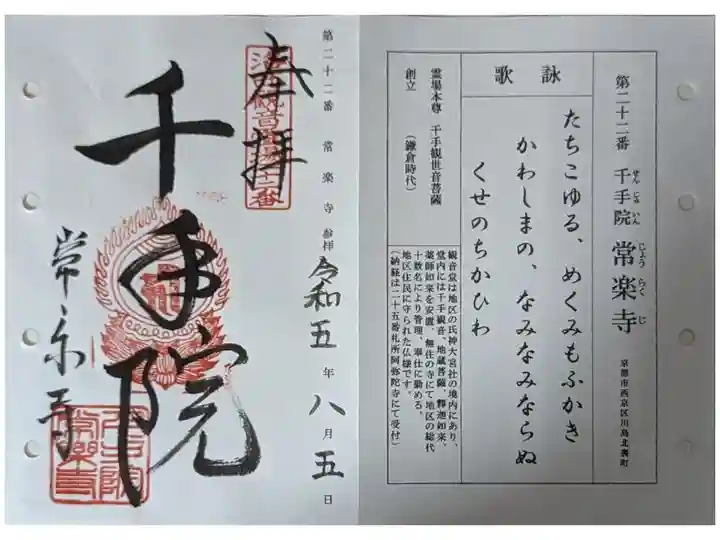 第二十二番 千手院 常楽寺 京都市西京区川島北裏町
せんじゅいん
じょうらくじ
詠歌
たちこゆる、めくみもふかき
かわしまの、なみなみならぬ
くせのちかひわ
霊場本尊 千手観世音菩薩
創立 (鎌倉時代)
観音堂は地区の氏神大宮社の境内にあり、
堂内には千手観音、地蔵菩薩、釋迦如来、
薬師如来を安置、無住の寺にて地区の総代
十数名により管理、奉仕に勤める。
地区住民に守られた仏様です。
(納経は二十五番札所阿弥陀寺にて受付)
第二十二番 常楽寺参拝 令和五年八月五日
奉拝
千手院
常楽寺